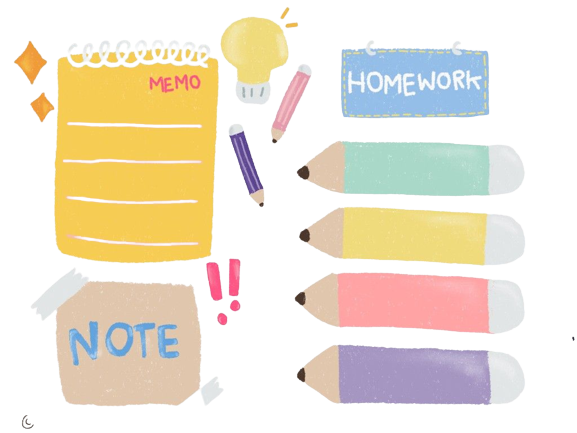 MEMO
HOMEWORK
!!
NOTE